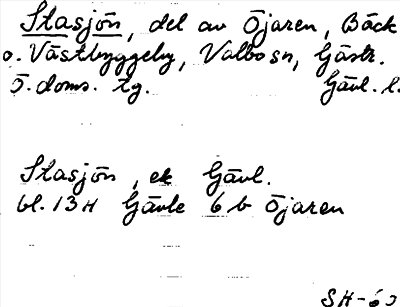 Stasjön, del av Öjaren, Bäck
o. Västbyggeby, Valbo sn, Gästr.
Ö. doms. tg. Gävl. l.
Stasjön, ek Gävl.
bl. 13H Gävle 6 b Öjaren
SH-63